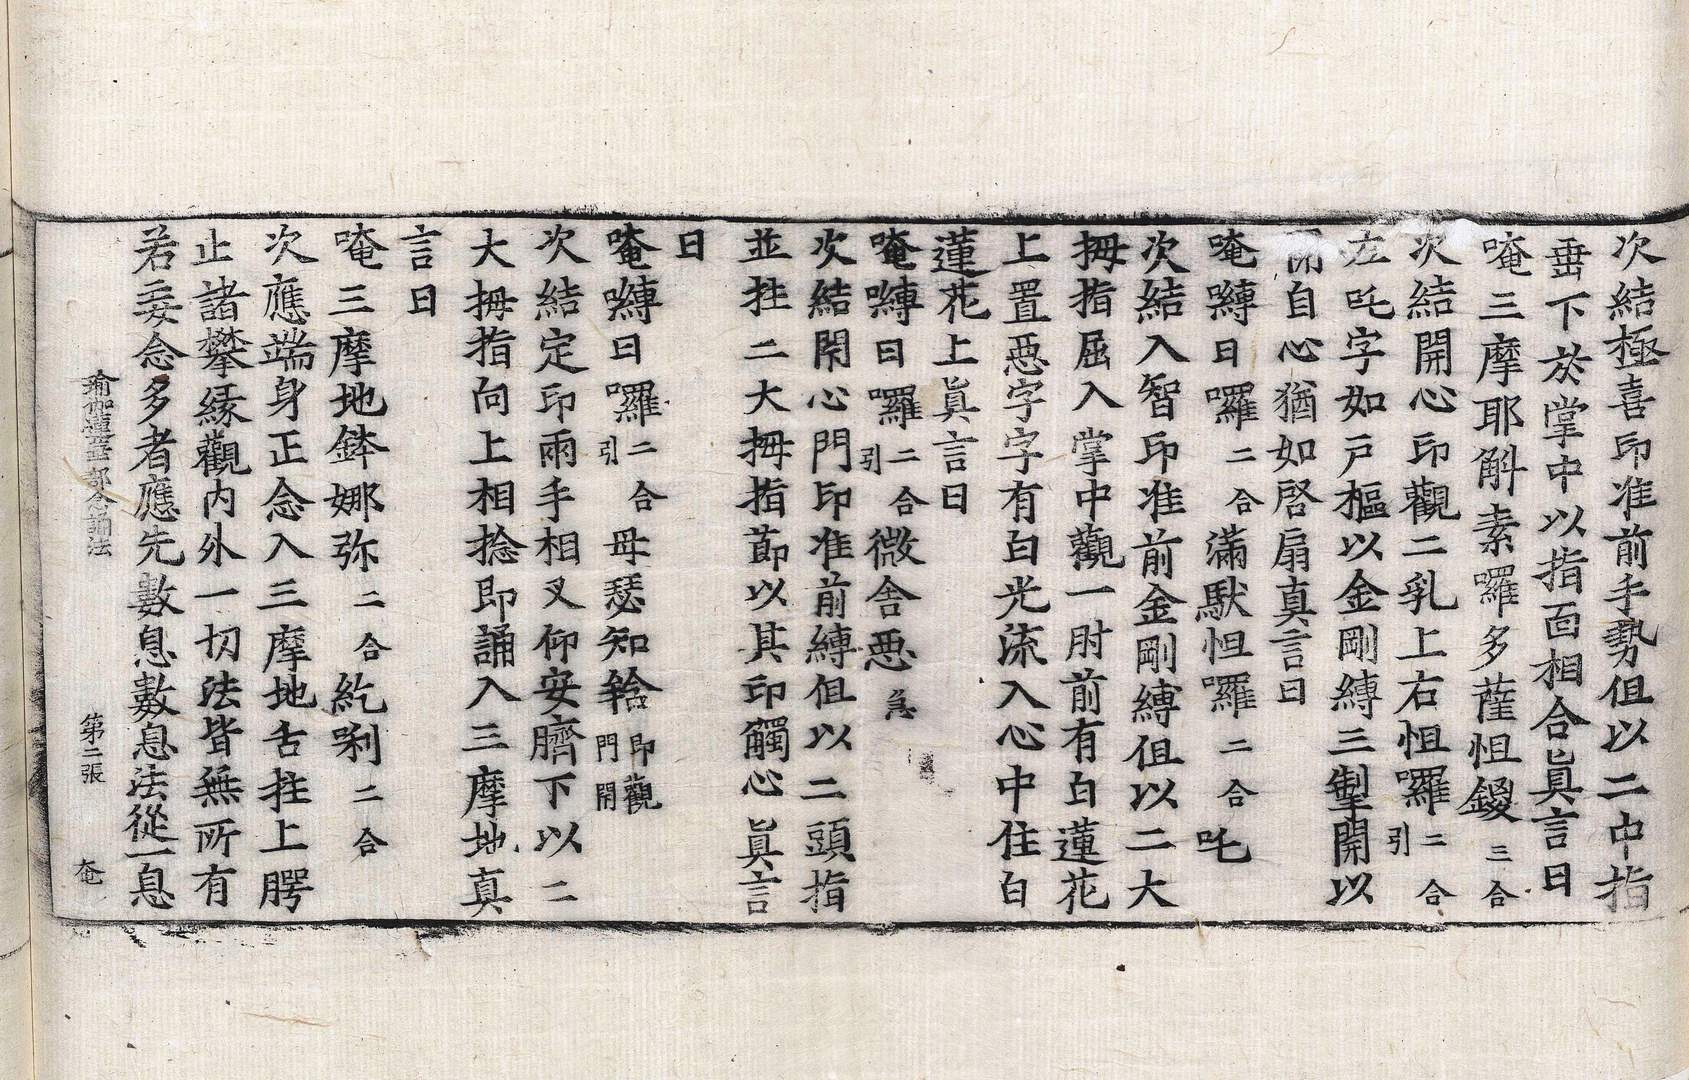 次結極喜印准前手勢但以二中指
垂下於掌中以指面相合眞言曰
唵三摩耶斛素囉多薩怛鑁三合
次結開心印觀二乳上右怛囉二合引
左吒字如戸樞以金剛縛三掣開以
開自心猶如啓扇真言曰
唵嚩日囉二合滿馱怛囉二合吒
次結入智印准前金剛縛但以二大
拇指屈入掌中觀一肘前有白蓮花
上置悪字字有白光流入心中住白
蓮花上眞言曰
唵嚩日囉二合引微舍悪急
次結閇心門印准前縛但以二頭指
並拄二大拇指節以其印觸心眞言
曰
唵嚩日囉二合引母瑟知䤈即觀門閇
次結定印兩手相叉仰安臍下以二
大拇指向上相捻即誦入三摩地真
言曰
唵三摩地鉢娜弥二合紇唎二合
次應端身正念入三摩地舌拄上腭
止諸攀縁觀内外一切法皆無所有
若妄念多者應先數息數息法從一息
瑜伽蓮華部念誦法 第二張